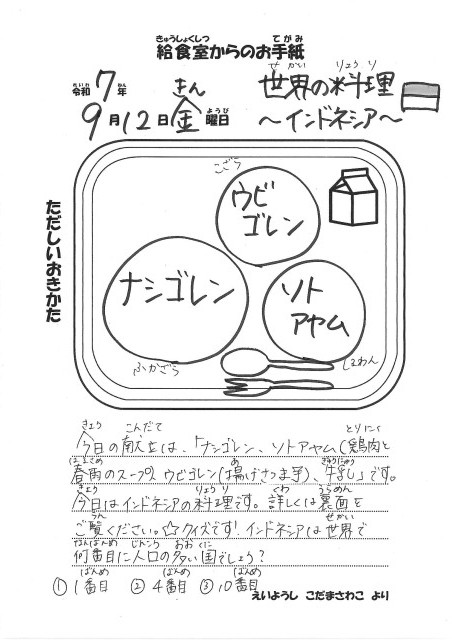 給食室からのお手紙
きゅうしょくしつ てがみ
令和7年
れいわ ねん
9月12日金曜日
きん ようび
世界の料理
せかい りょうり
〜インドネシア〜
ただしいおきかた
こざら
ウビ
ゴレン
ナシゴレン
ソト
アヤム
ふかざら
しるわん
きょう こんだて とりにく
今日の献立は、「ナシゴレン、ソトアヤム(鶏肉と
はるさめ あ ぎゅうにゅう
春雨のスープ)、ウビゴレン(揚げさつま芋)、牛乳」です。
きょう りょうり くわ うらめん
今日はインドネシアの料理です。詳しくは裏面を
らん せかい
ご覧ください。☆クイズです!インドネシアは世界で
なんばんめ じんこう おお くに
何番目に人口の多い国でしょう?
ばんめ ばんめ ばんめ
①1番目 ②4番目 ③10番目
えいようし こだまさわこ より